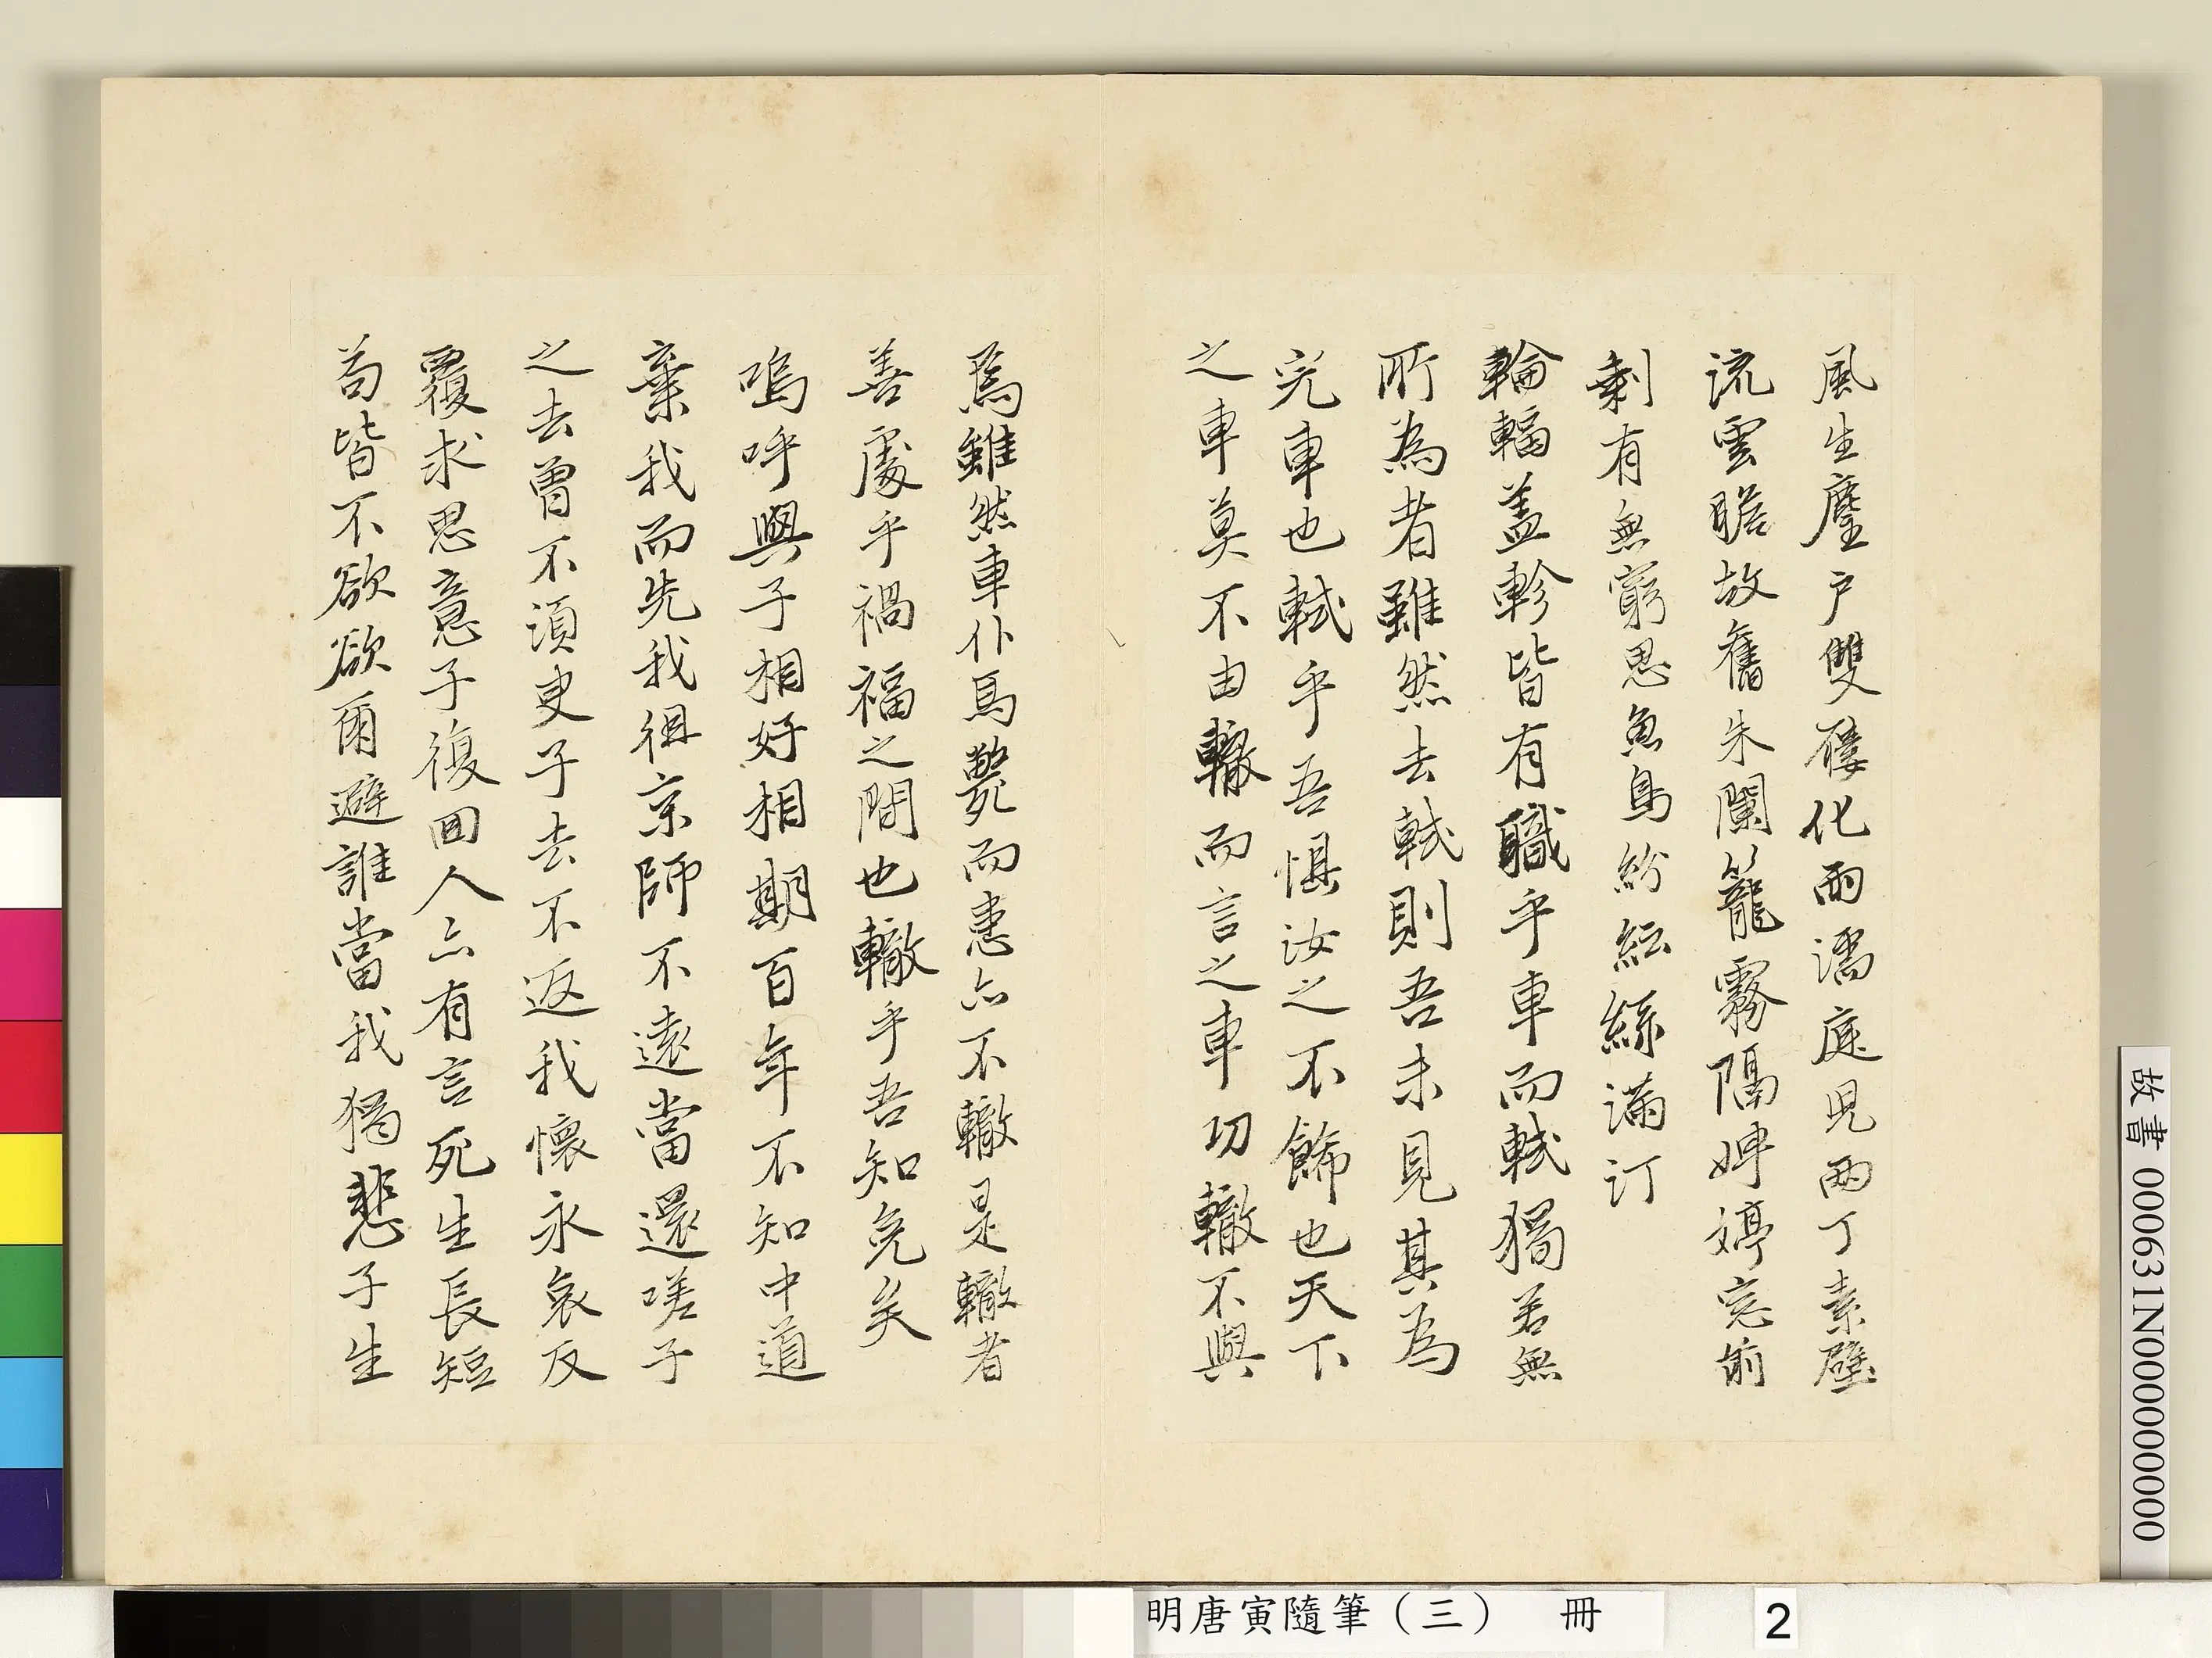 風生塵戶雙樓化雨濡庭見兩丁素壁
流雲瞻故舊朱闌籠霧隔娉婷窓前
剩有無窮思魚鳥紛紜絲滿汀
輪輻盖軫皆有職乎車而軾獨若無
所為者雖然去軾則吾未見其為
完車也軾乎吾懼汝之不飾也天下
之車莫不由轍而言之車功轍不與
焉雖然車仆馬斃而患亦不轍是轍者
善處乎禍福之間也轍乎吾知免矣
嗚呼與子相好相期百年不知中道
棄我而先我徂京師不遠當還嗟子
之去曾不湏臾子去不返我懷永哀反
覆求思意子復回人亦有言死生長短
苟皆不欲欲爾避誰當我獨悲子生
故書 000631N000000000
明唐寅隨筆（三） 冊
2